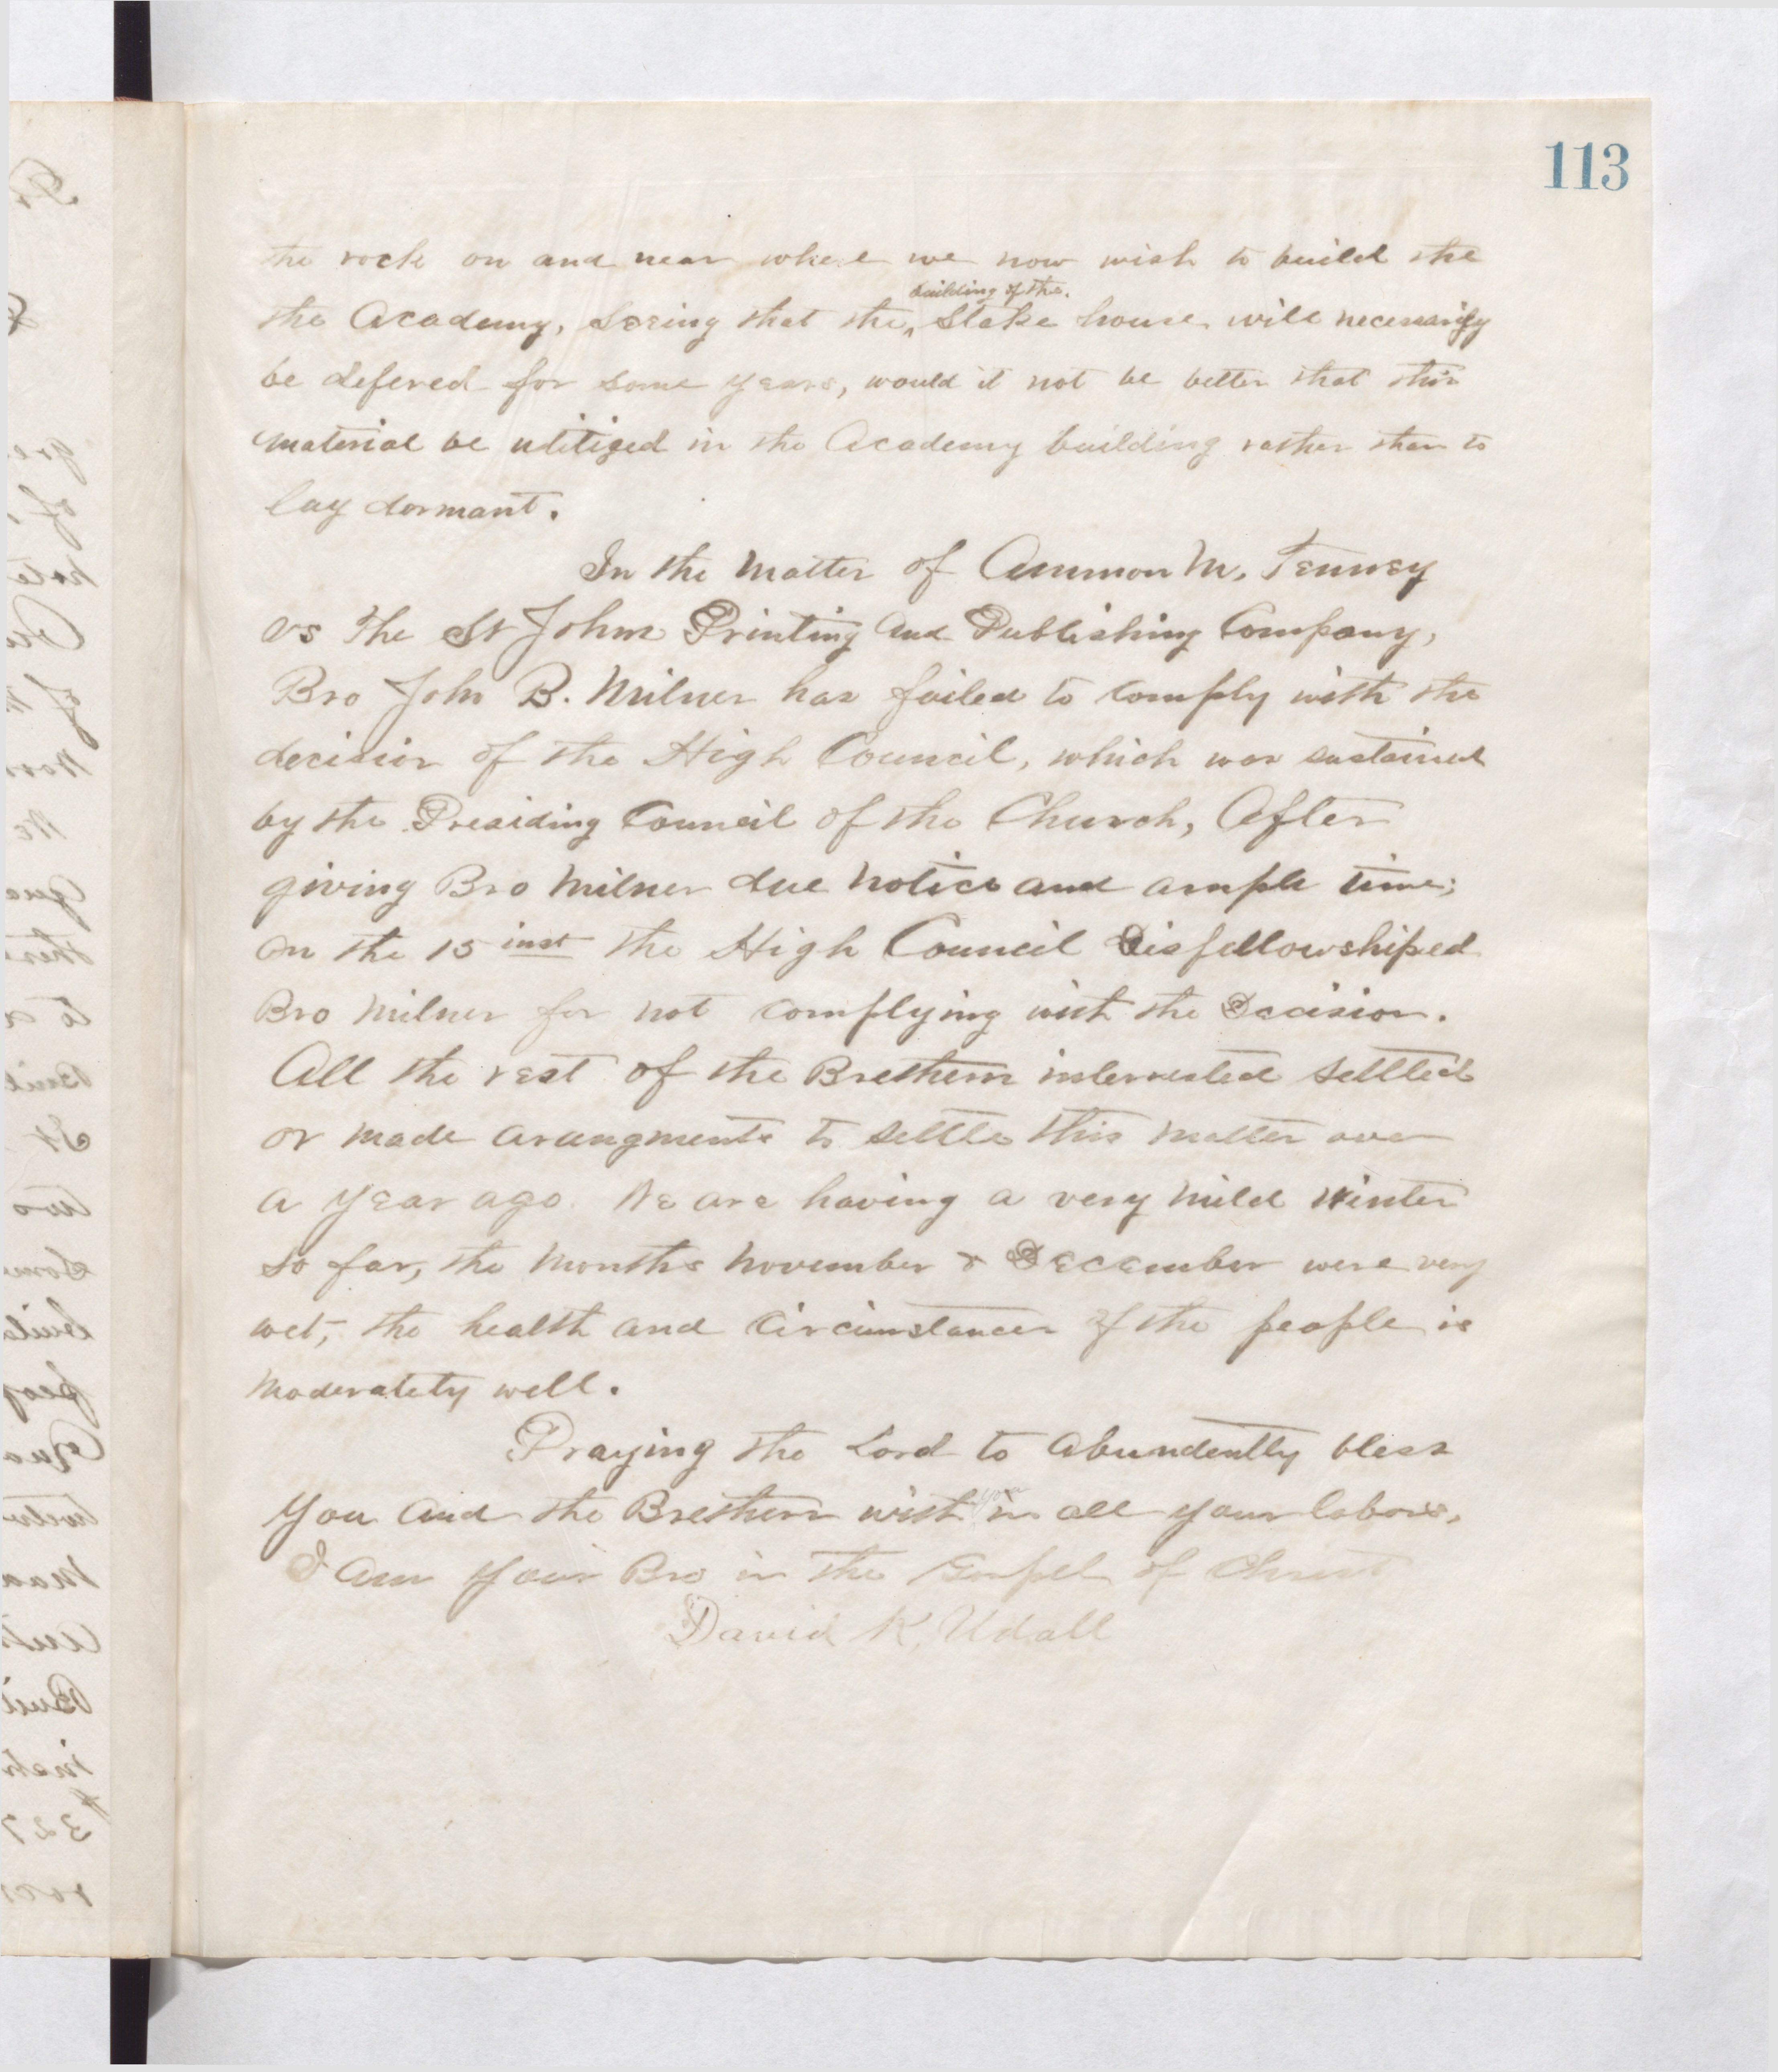 113
the rock on and near where we now wish to build the
building of the
the Academy, Seeing that the, Stake house will necessarily
be defered for some years, would it not be better that this
material be utilized in the Academy building rather than to
lay dormant.
In the Matter of Ammon M. Tenney
vs The St Johns Printing and Publishing Company,
Bro John B. Milner has failed to comply with the
decision of the High Council, which was sustained
by the Presiding Council of the Church, After
giving Bro Milner due Notice and ample time;
on the 15 inst the High Council Disfellowshiped
Bro Milner for not complying with the Decision.
All the rest of the Brethern interested Settled
or made arangments to settle this matter over
a year ago. We are having a very mild Winter
so far, the Months November & December were very
wet, the health and Circumstances of the people is
Moderately well.
Praying the Lord to Abundently bless
you
You and the Brethern with in all your labors,
I am Your Bro in the Gospel of Christ
David K. Udall